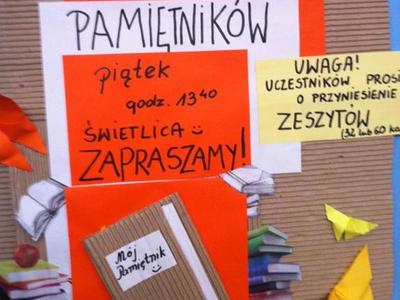 PAMIĘTNIKÓW
piątek
godz. 13⁴⁰
ŚWIETLICA
ZAPRASZAMY!
UWAGA!
UCZESTNIKÓW
O PRZYNIESIENIE
ZESZYTÓW
(32 lub 60
Mój
Pamiętnik